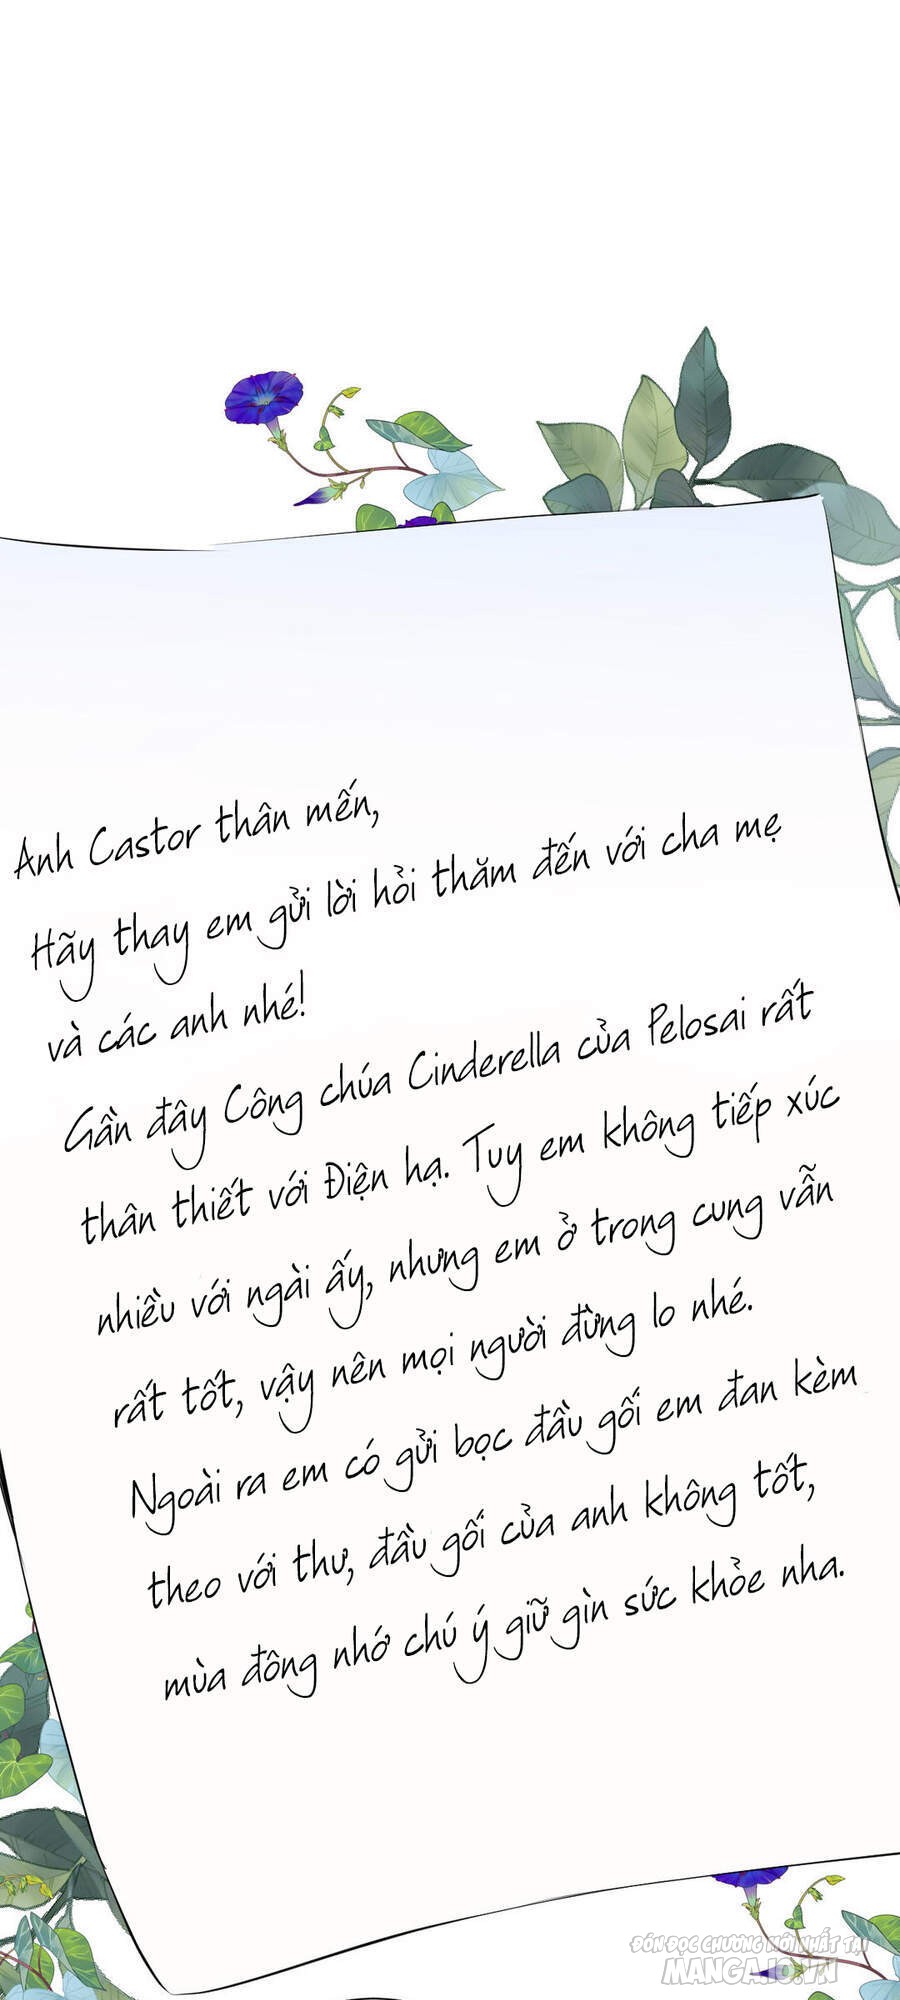 Anh Castor thân mến,
Hãy thay em gửi lời hỏi thăm đến với cha mẹ
và các anh nhé!
Gần đây Công chúa Cinderella của Pelosai rất
thân thiết với Điện hạ. Tuy em không tiếp xúc
nhiều với ngài ấy, nhưng em ở trong cung vẫn
rất tốt, vậy nên mọi người đừng lo nhé.
Ngoài ra em có gửi bọc đầu gối em đan kèm
theo với thư, đầu gối của anh không tốt,
mùa đông nhớ chú ý giữ gìn sức khỏe nha.
ĐÓN ĐỌC CHƯƠNG MỚI NHẤT TẠI
MANGAIO.VN